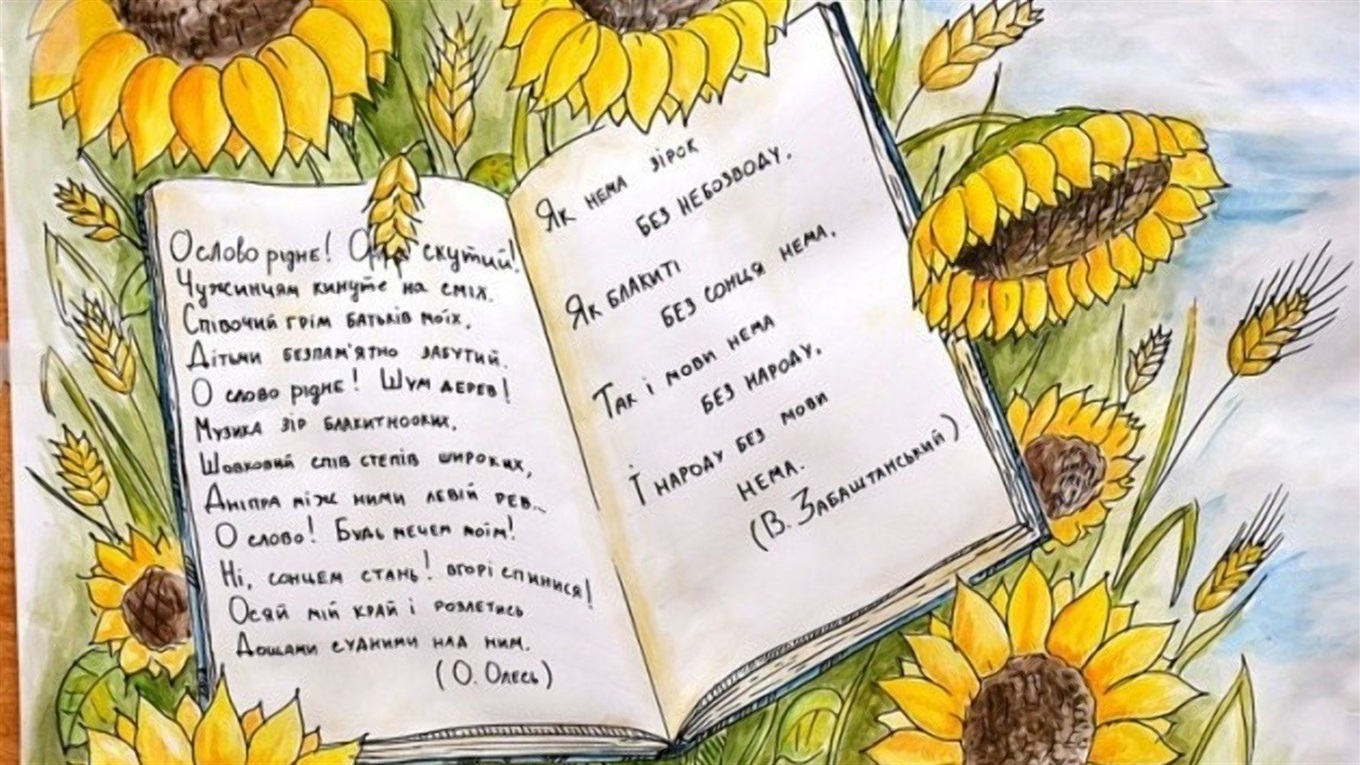 О слово рідне! скутий!
Чужинцям кинуте на сміх.
Співочий грім батьків моїх,
Дітьми безпам'ятно забутий.
О слово рідне! Шум дерев!
Музика зір блакитнооких,
Шовковий спів степів широких,
Дніпра між ними левій рев...
О слово! Будь мечем моїм!
Ні, сонцем стань! вгорі спинися!
Осяй мій край і розлетись
Дощами судними над ним.
(О. Олесь)
Як нема зірок
без небозводу.
Як блакиті
без сонця нема,
Так і мови нема
без народу,
І народу без мови
нема.
(В. Забаштанський).